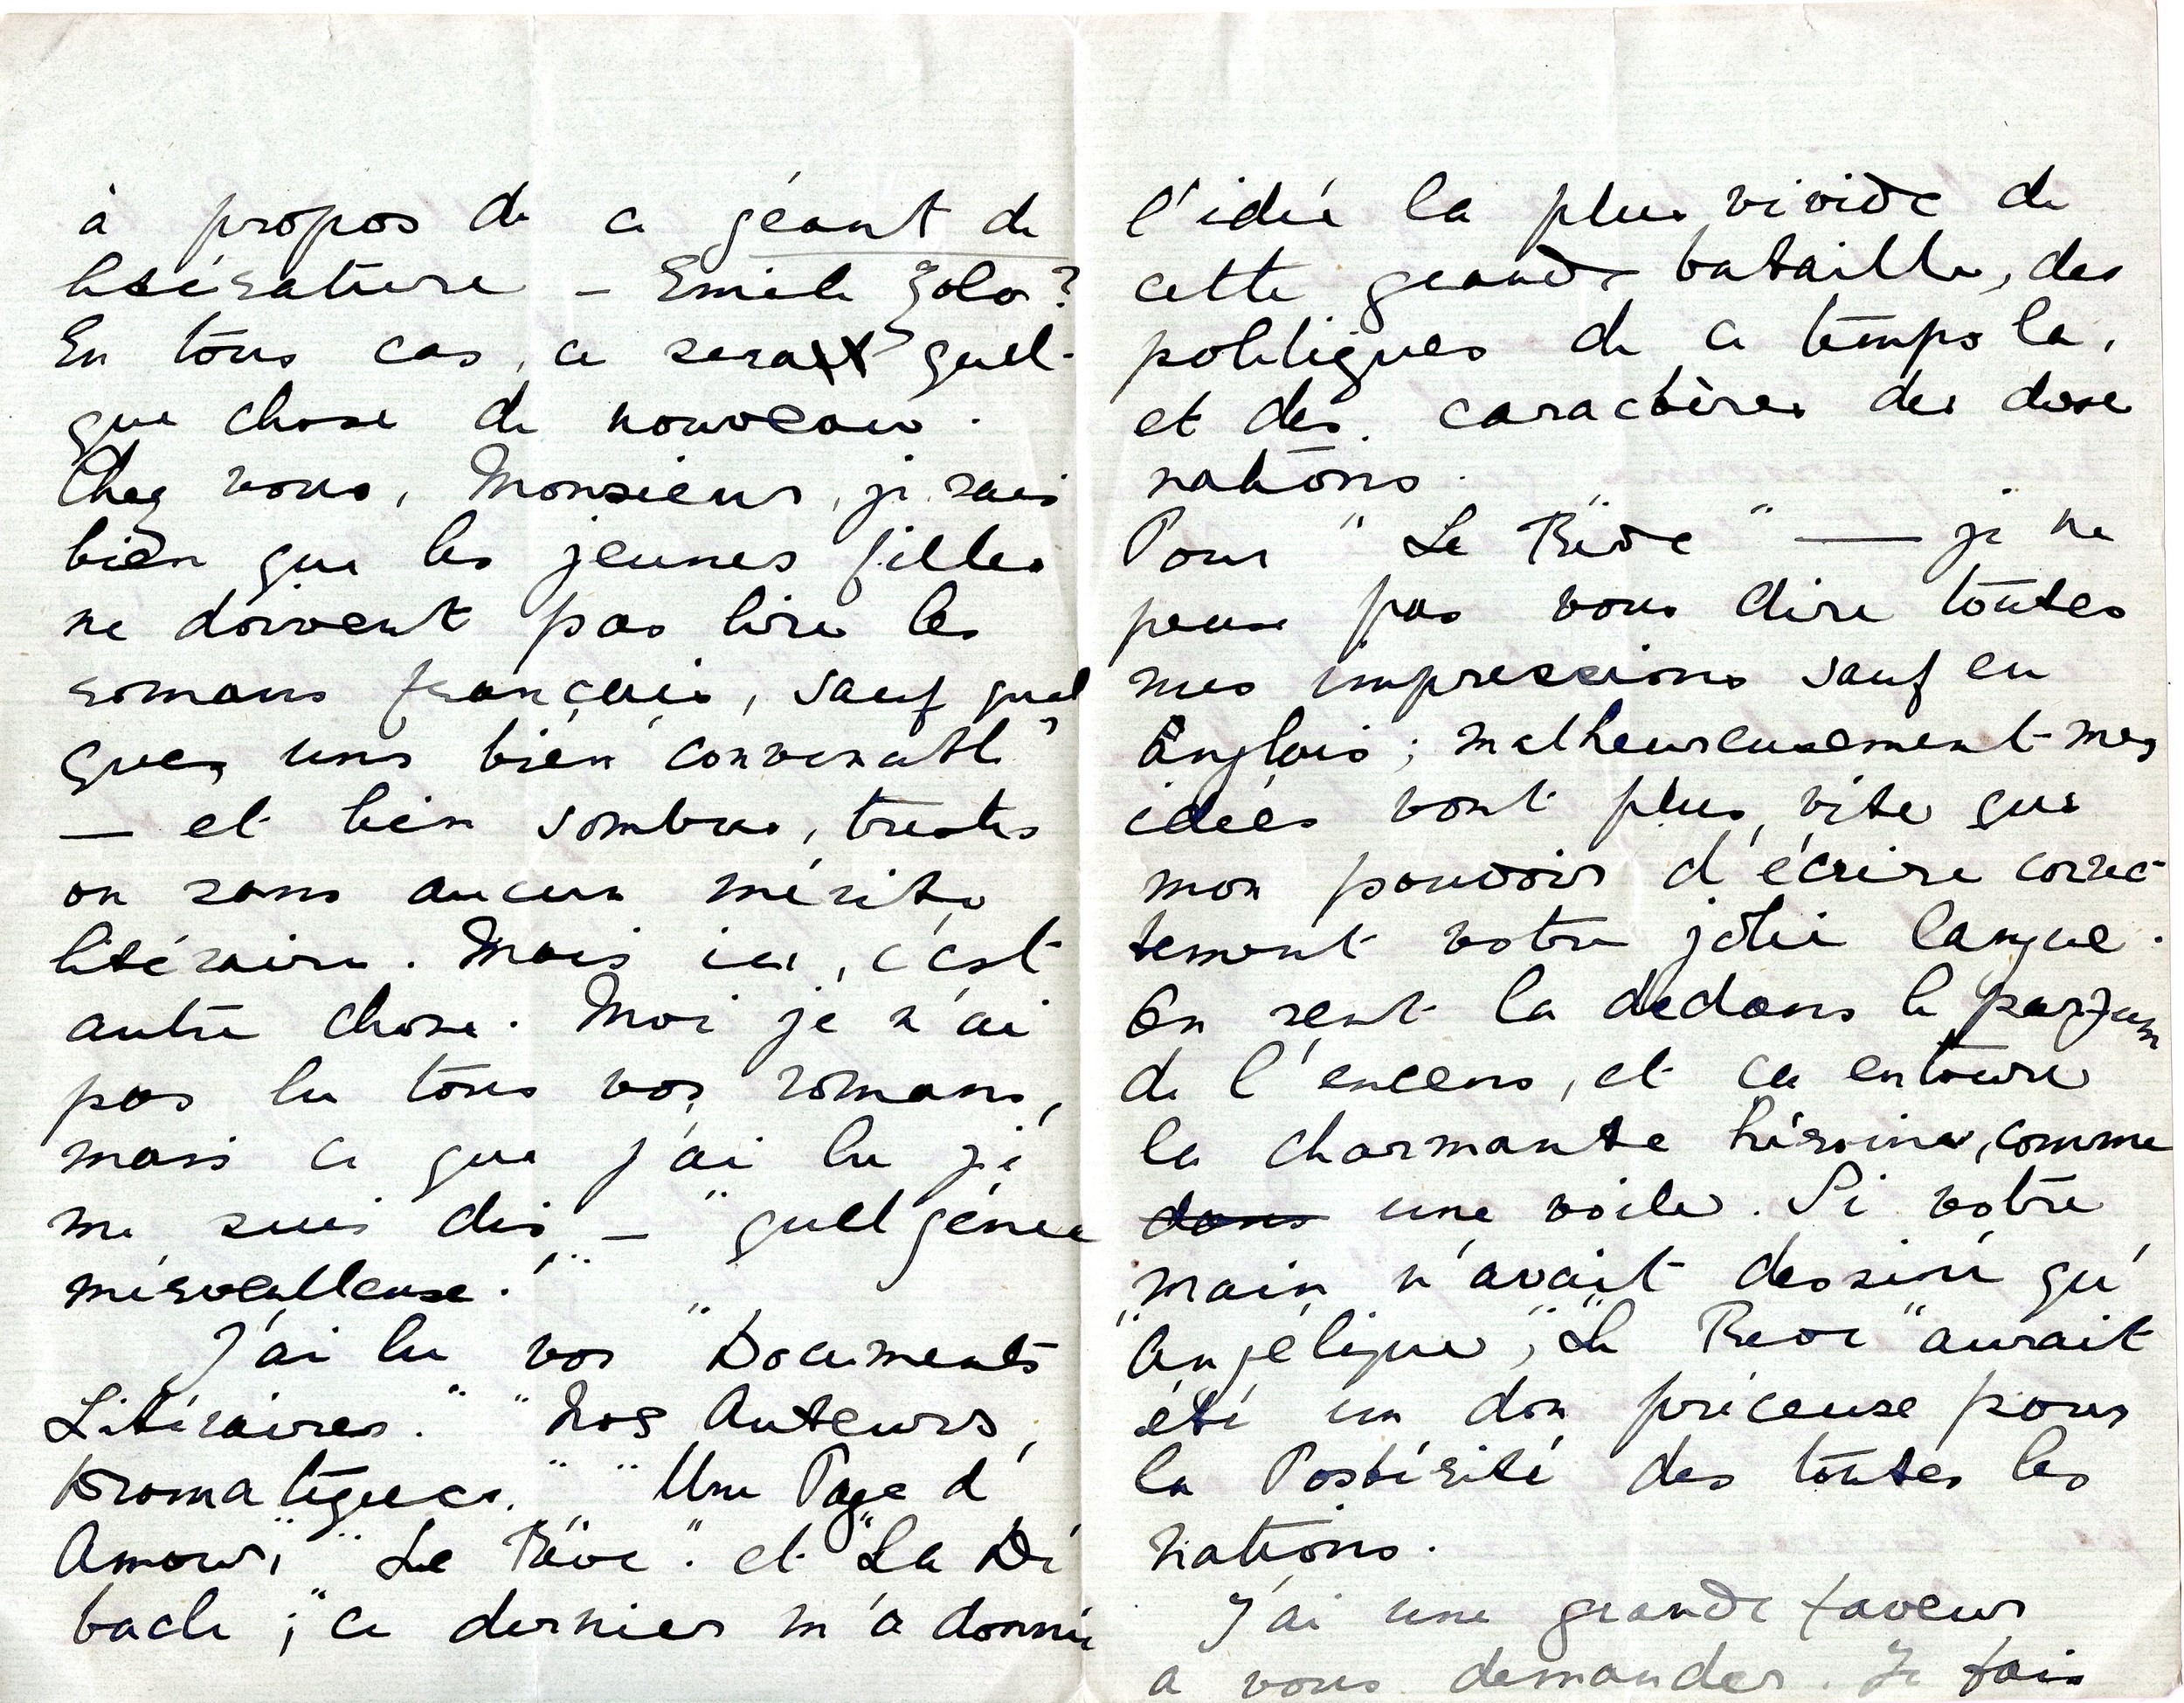 à propos de ce géant de
litérature – Emile Zola?
En tous cas, ce sera quel-
que chose de nouveau.
Chez vous, Monsieur, je sais
bien que les jeunes filles
ne doivent pas lire les
romans français, sauf quel
ques uns bien "convenable"
— et bien sombres, tristes
ou sans aucun mérite
litéraire. Mais ici, c'est
autre chose. Moi je n'ai
pas lu tous vos romans,
mais ce que j'ai lu je
me suis dis – "quel génie
mérveilleuse!"
J'ai lu vos "Documents
Litéraires." "Nos Auteurs
Dramatiques." "Une Page d'
Amour," "Le Rêve". et "La Dé
bacle;" ce dernier m'a donnée
l'idée la plus vivide de
cette grande bataille, des
politiques de ce temps la,
et des caractères des deux
nations.
Pour "Le Rêve" — je ne
peux pas vous dire toutes
mes impressions sauf en
Anglais; malheureusement mes
idées vont plus vite que
mon pouvoir d'écrire correc-
tement votre jolie langue.
On sent la dedans le parfum
de l'encens, et ca entoure
la charmante héroine, comme
dans une voile. Si votre
main n'avait dessiné qu'
"Angélique", "Le Reve" aurait
été un don préceuse pour
la Postérité des toutes les
nations.
J'ai une grande faveur
a vous demander. Je fais